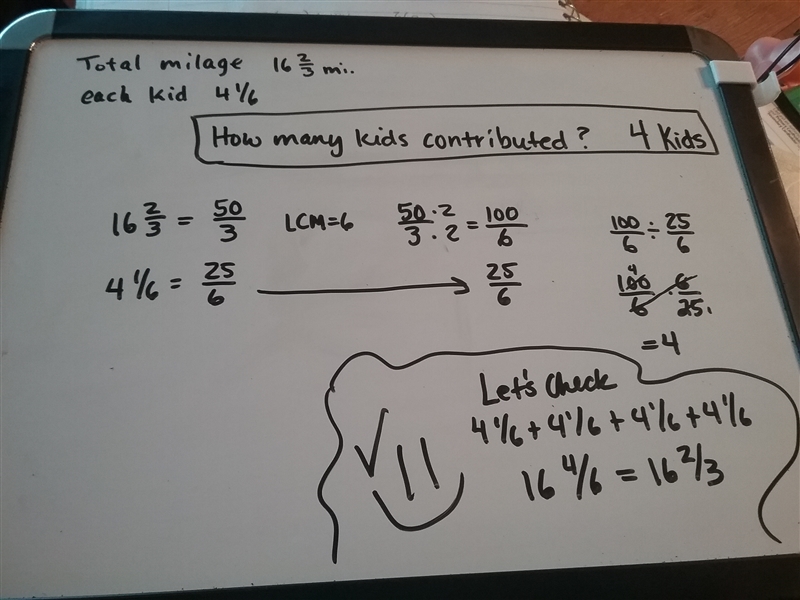 Total milage 16 2/3 mi..
each kid 4 1/6
How many kids contributed? 4 Kids
16 2/3 = 50/3 LCM=6 50/3 · 2/2 = 100/6 100/6 ÷ 25/6
4 1/6 = 25/6 → 25/6 4 100/6 · 6/25.
=4
Let's Check
4 1/6 + 4 1/6 + 4 1/6 + 4 1/6
16 4/6 = 16 2/3